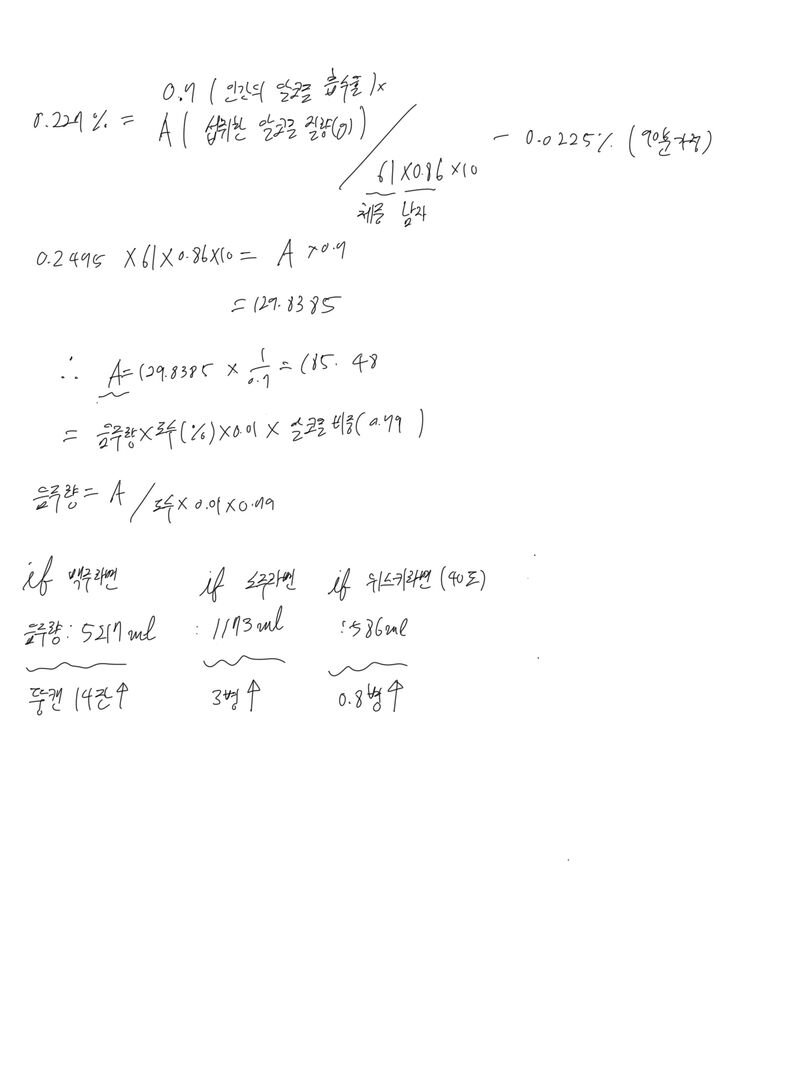 0.7 ( 인간의 알코올 흡수율 ) x
0.227 % = A ( 섭취한 알코올 질량(g) ) / 61 X 0.86 X 10 - 0.0225% ( 90분 가정 )
체중 남자
0.2495 X 61 X 0.86 X 10 = A X 0.7
= 129.8385
∴ A = 129.8385 X 1/0.7 = 185. 48
= 음주량 X 도수(%) X 0.01 X 알코올 비중( 0.79 )
음주량 = A / 도수 X 0.01 X 0.79
if 맥주라면 if 소주라면 if 위스키라면 (40도)
음주량 : 5217 ml : 1173 ml : 586 ml
뚱캔 14잔↑ 3병↑ 0.8병↑